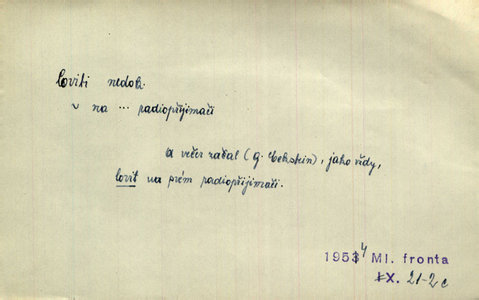 loviti nedok.
~ na ... radiopřijimači
A večer začal (G. Eckstein), jako vždy,
lovit na svém radiopřijimači.
1954 Ml. fronta
X. 21-2c